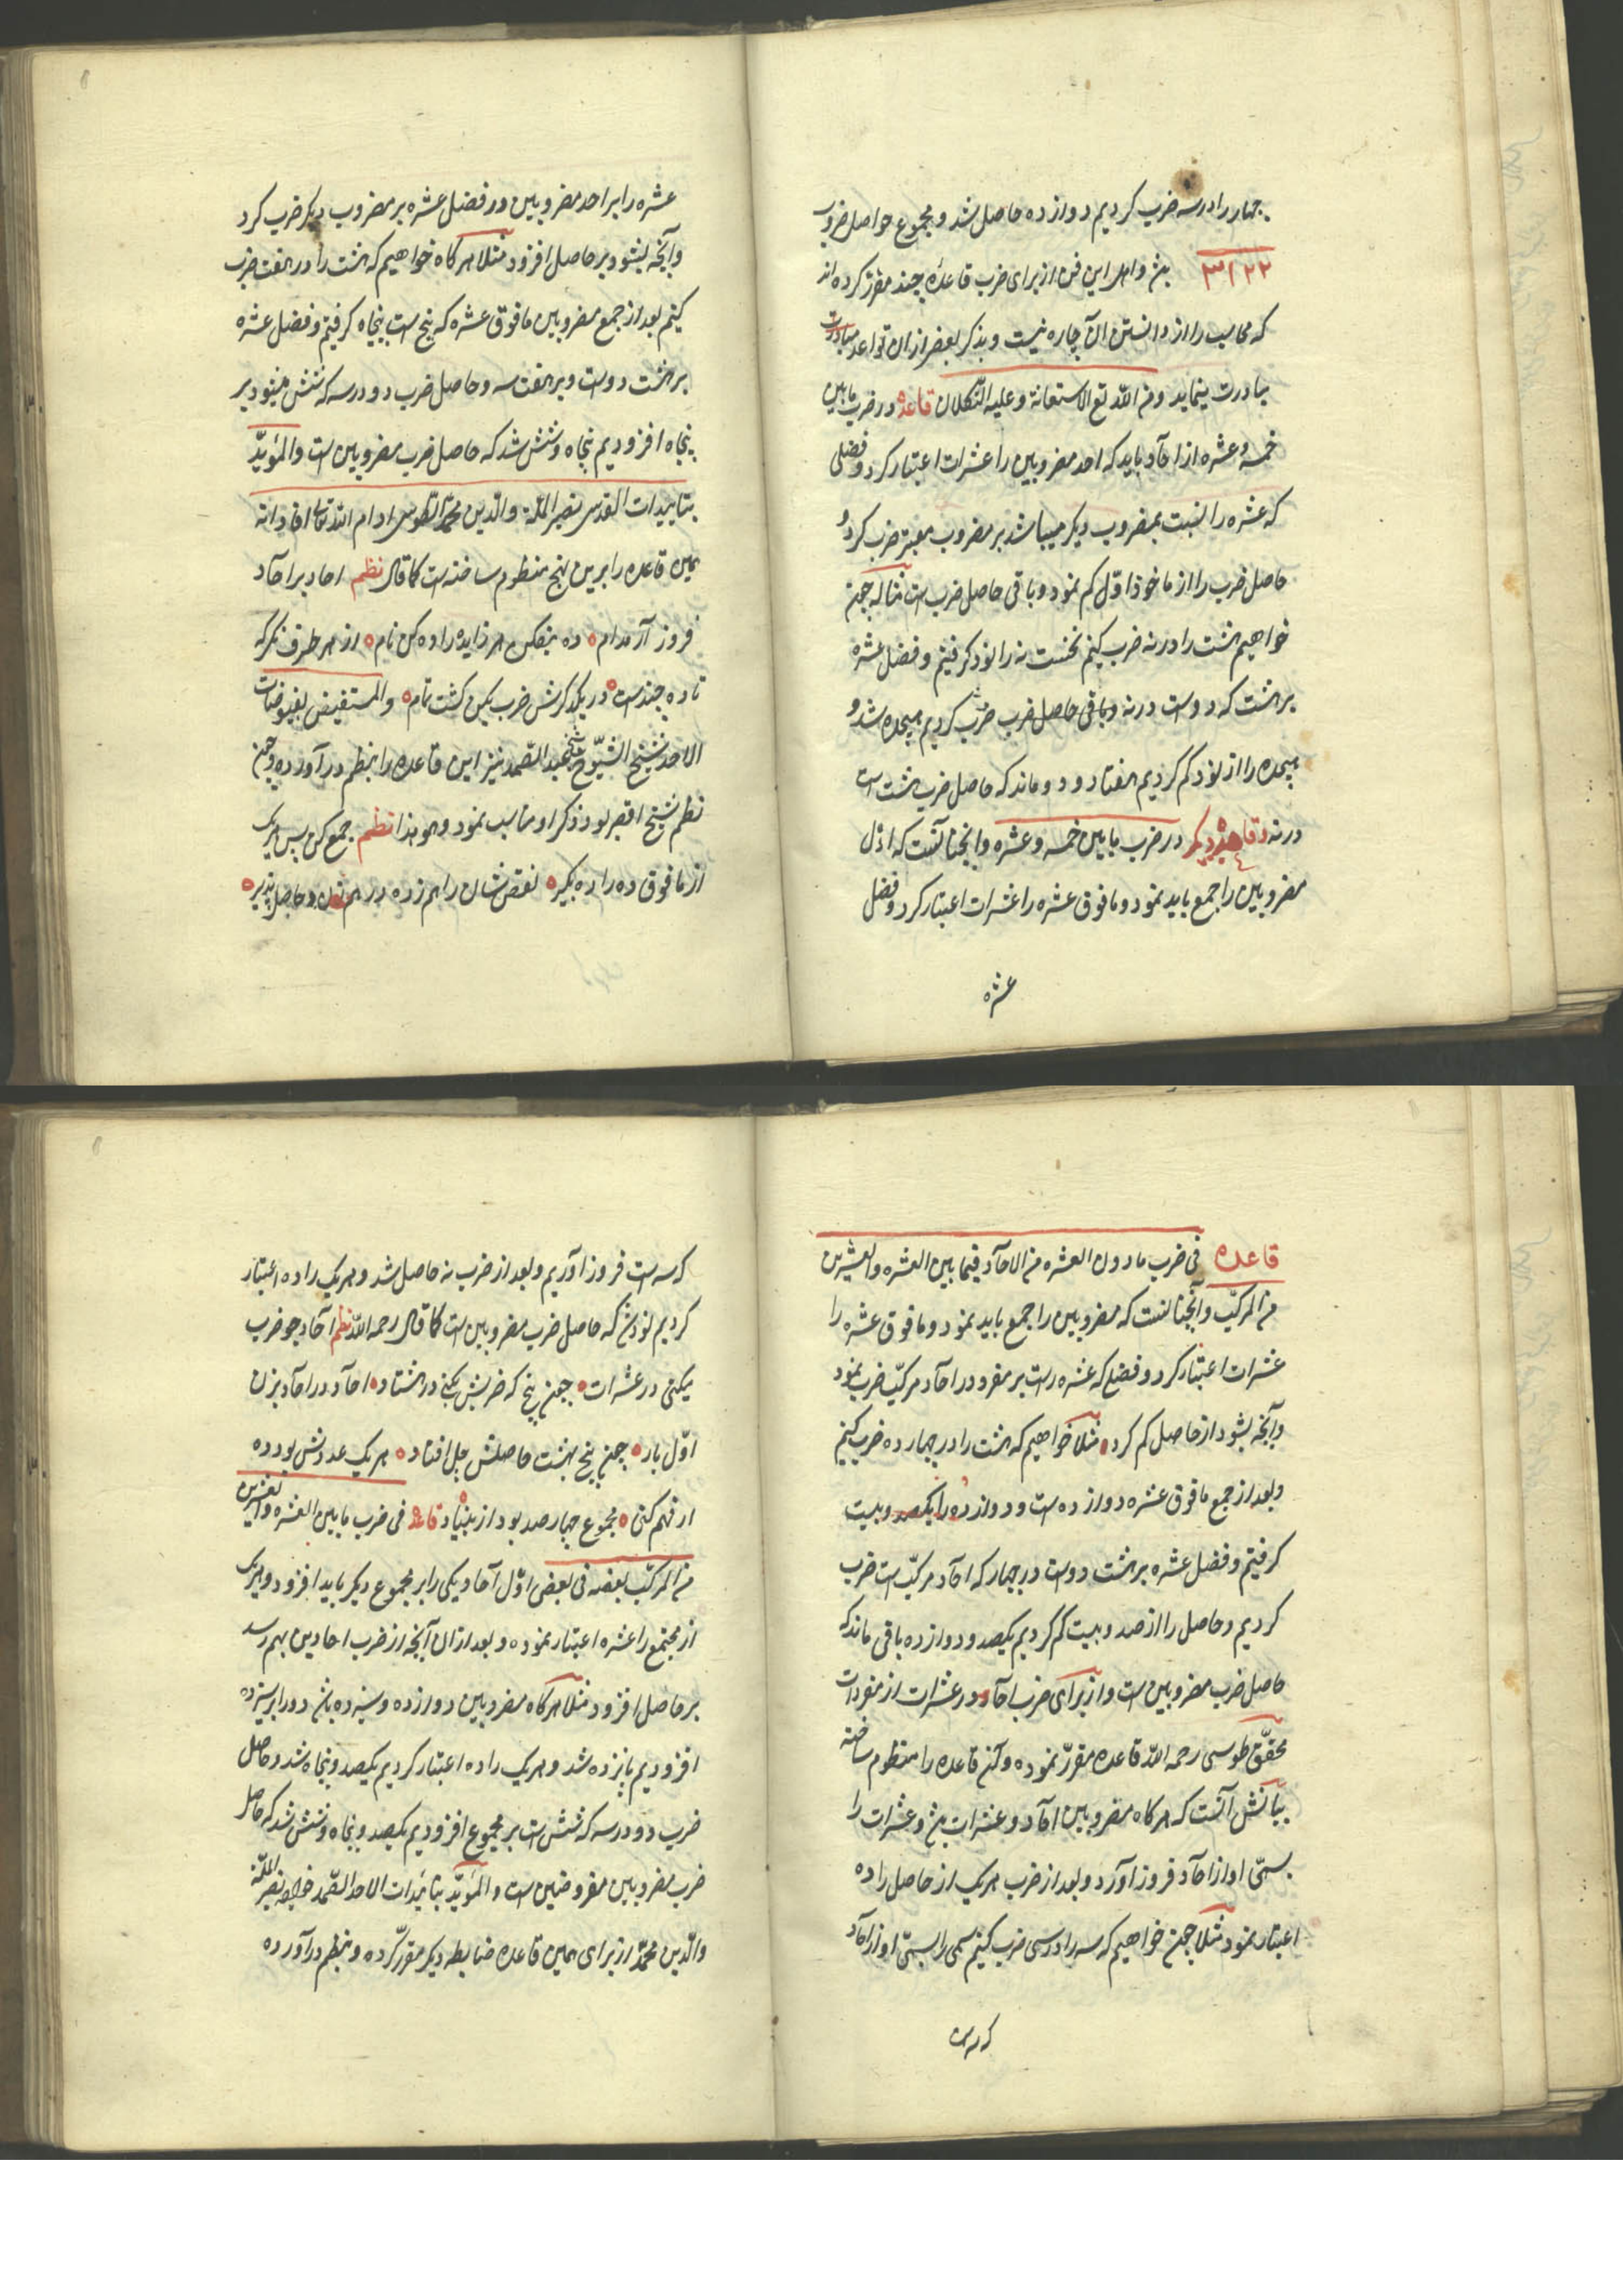 چهار را در سه ضرب کردیم دوازده حاصل شد و مجموع حواصل ضروب
۳۱۲۲ و اهل این فن از برای ضرب قاعدهٔ چند مقرر کرده اند
که محاسب را از دانستن آن چاره نیست و بذکر بعضی از ان قواعد مبادرت
مبادرت مینماید و من اللّه تع الاستعانة و علیه التّکلان قاعده در ضرب مابین
خمسه و عشره از احآد باید که احد مضروبین را عشرات اعتبار کرد و فضلی
که عشره را نسبت بمضروب دیکر میباشد بر مضروب معتبر ضرب کرد و
حاصل ضرب را از ماخوذ اوّل کم نمود و باقی حاصل ضرب است مثاله چون
خواهیم هشت را در نه ضرب کنیم نخست نه را نود کرفتیم و فضل عشره
بر هشت که دوست در نه و باقی حاصل ضرب ضرب کردیم هیجده شد و
هیجده را از نود کم کردیم هفتاد و دو ماند که حاصل ضرب هشت است
در نه و قاعده دیکر در ضرب مابین خمسه و عشره و آنچنانست که اوّل
مضروبین را جمع باید نمود و مافوق عشره را عشرات اعتبار کرد و فضل
عشره
عشره را بر احد مضروبین در فضل عشره بر مضروب دیکر ضرب کرد
و آنچه بشود بر حاصل افزود مثلا هرکاه خواهیم که هشت را در هفت ضرب
کنیم بعد از جمع مضروبین مافوق عشره که پنج است پنجاه کرفتیم و فضل عشره
بر هشت دوست و بر هفت سه و حاصل ضرب دو در سه که شش میشود بر
پنجاه افزودیم پنجاه و شش شد که حاصل ضرب مضروبین است و المؤیّد
بتاییدات القدسی نصیر الملّة و الدّین محمّد الطوسی ادام اللّه تعالی افاداته
همین قاعده را برین نهج منظوم ساخته است کما قال نظم احاد بر احآد
فروز آر مدام ده بفکن هر زایده را ده کن نام از هر طرف نکر که
تا ده چندست در یکدکرش ضرب بکن کشت تمام و المستفیض بفیوضات
الاحد شیخ الشیّوخ شیخ عبد الصّمد نیز این قاعده را بنظم در آورده و چون
نظم شیخ اقصر بود ذکر او مناسب نمود و هو هذا نظم جمع کن پس هریک
از مافوق ده را ده بکیر نقص شان را هم زده در هم زن و حاصل پذیر
قاعده فی ضرب مادون العشره من الاحآد فیما بین العشره و العشرین
من المرکّب و آنچنانست که مضروبین را جمع باید نمود و مافوق عشره را
عشرات اعتبار کرد و فضلی که عشره راست بر مفرد در احآد مرکّب ضرب نمود
و آنچه بشود از حاصل کم کرد مثلا خواهیم که هشت را در چهارده ضرب کنیم
و بعد از جمع مافوق عشره دوازده ست و دوازده را یکصد و بیست
کرفتیم و فضل عشره بر هشت دوست در چهار که احآد مرکّب است ضرب
کردیم و حاصل را از صد و بیست کم کردیم یکصد و دوازده باقی ماند که
حاصل ضرب مضروبین است و از برای ضرب احآد در عشرات از مفردات
محقّق طوسی رحمه اللّه قاعده مقرّر نموده و آن قاعده را منظوم ساخته
بیانش آنست که هرکاه مضروبین احآد و عشرات و عشرات را
بسمّی او از احآد فروز آورد و بعد از ضرب هریک از حاصل را ده
اعتبار نمود مثلا چون خواهیم که سه را در سی ضرب کنیم سی را بسمّی او از احآد
که سه است
که سه است فروز آوریم و بعد از ضرب نه حاصل شد و هریک را ده اعتبار
کردیم نود شد که حاصل ضرب مضروبین است کما قال رحمه اللّه نظم احآد چو ضرب
میکنی در عشرات چون پنج که ضربش بکنی در هشتاد احآد در احآد بزن
اوّل بار چون پنج بهشت حاصلش چل افتاد هریک عددش بود ده
ار فهم کنی مجموع چهارصد بود از بنیاد قاعده فی ضرب مابین العشره و العشرین
من المرکّب بعضه فی بعض اوّل آحاد یکی را بر مجموع دیکر باید افزود و هریک
از مجتمع را عشره اعتبار نموده و بعد از آن آنچه از ضرب احادین بهم رسد
بر حاصل افزود مثلا هرکاه مضروبین دوازده و سیزده باشد دو را بر سیزده
افزودیم پانزده شد و هریک را ده اعتبار کردیم یکصد و پنجاه شد و حاصل
ضرب دو در سه که شش است بر مجموع افزودیم یکصد و پنجاه و شش شد که حاصل
ضرب مضروبین مفروضین است و المؤیّد بتائیدات الاحد الصّمد خواجه نصیر الملّة
و الدّین محمّد از برای همین قاعده ضابطه دیکر مقرّر کرده و بنظم در آورده